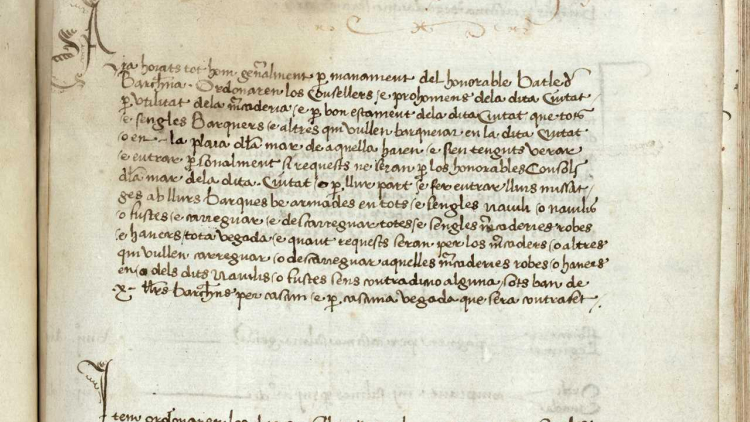 Ara hoiats tot hom gen̄alment p manament del honorable Batle d
Barchn̄a. Ordonaren los Cõsellers e prohomens dela dita Ciutat
p Vtilitat dela mc̄aderia e p bon estament dela dita Ciutat que tots
e sengles Barquers e altres qui vullen barqueiar en la dita Ciutat
o en la plaia dla mar de aquella haien e sien tenguts verar
e entrar psonalment si requests ne seran p los honorables Consols
dla mar dela dita Ciutat o p llur part e fer entrar llurs missat
ges ab llurs Barques be armades en tots e sengles nauili o nauilis
o fustes e carreguar e descarreguar totes e sengles mc̄aderies robes
e hauers tota vegada e quant requests seran per los mc̄aders o altres
qui vullen carreguar o descarreguar aquelles mc̄aderies robes o hauers
en o dels dits Nauilis o fustes sens contradictio alguna sots ban de
x. llrs Barchn̄s per cascun e p cascuna vegada que sera contrafet
Item ordonaren los